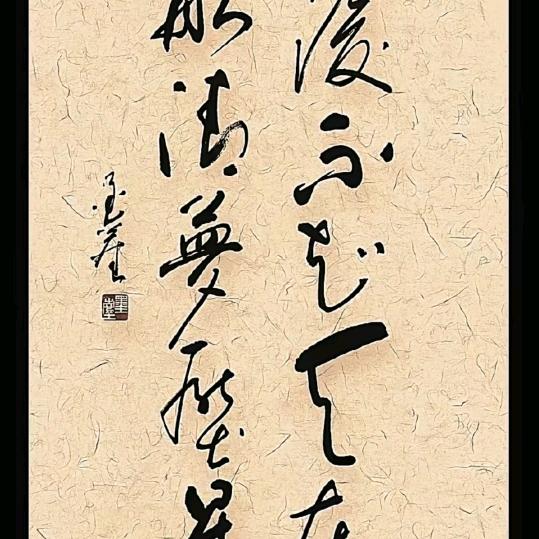 後不知天在
船清夢壓星